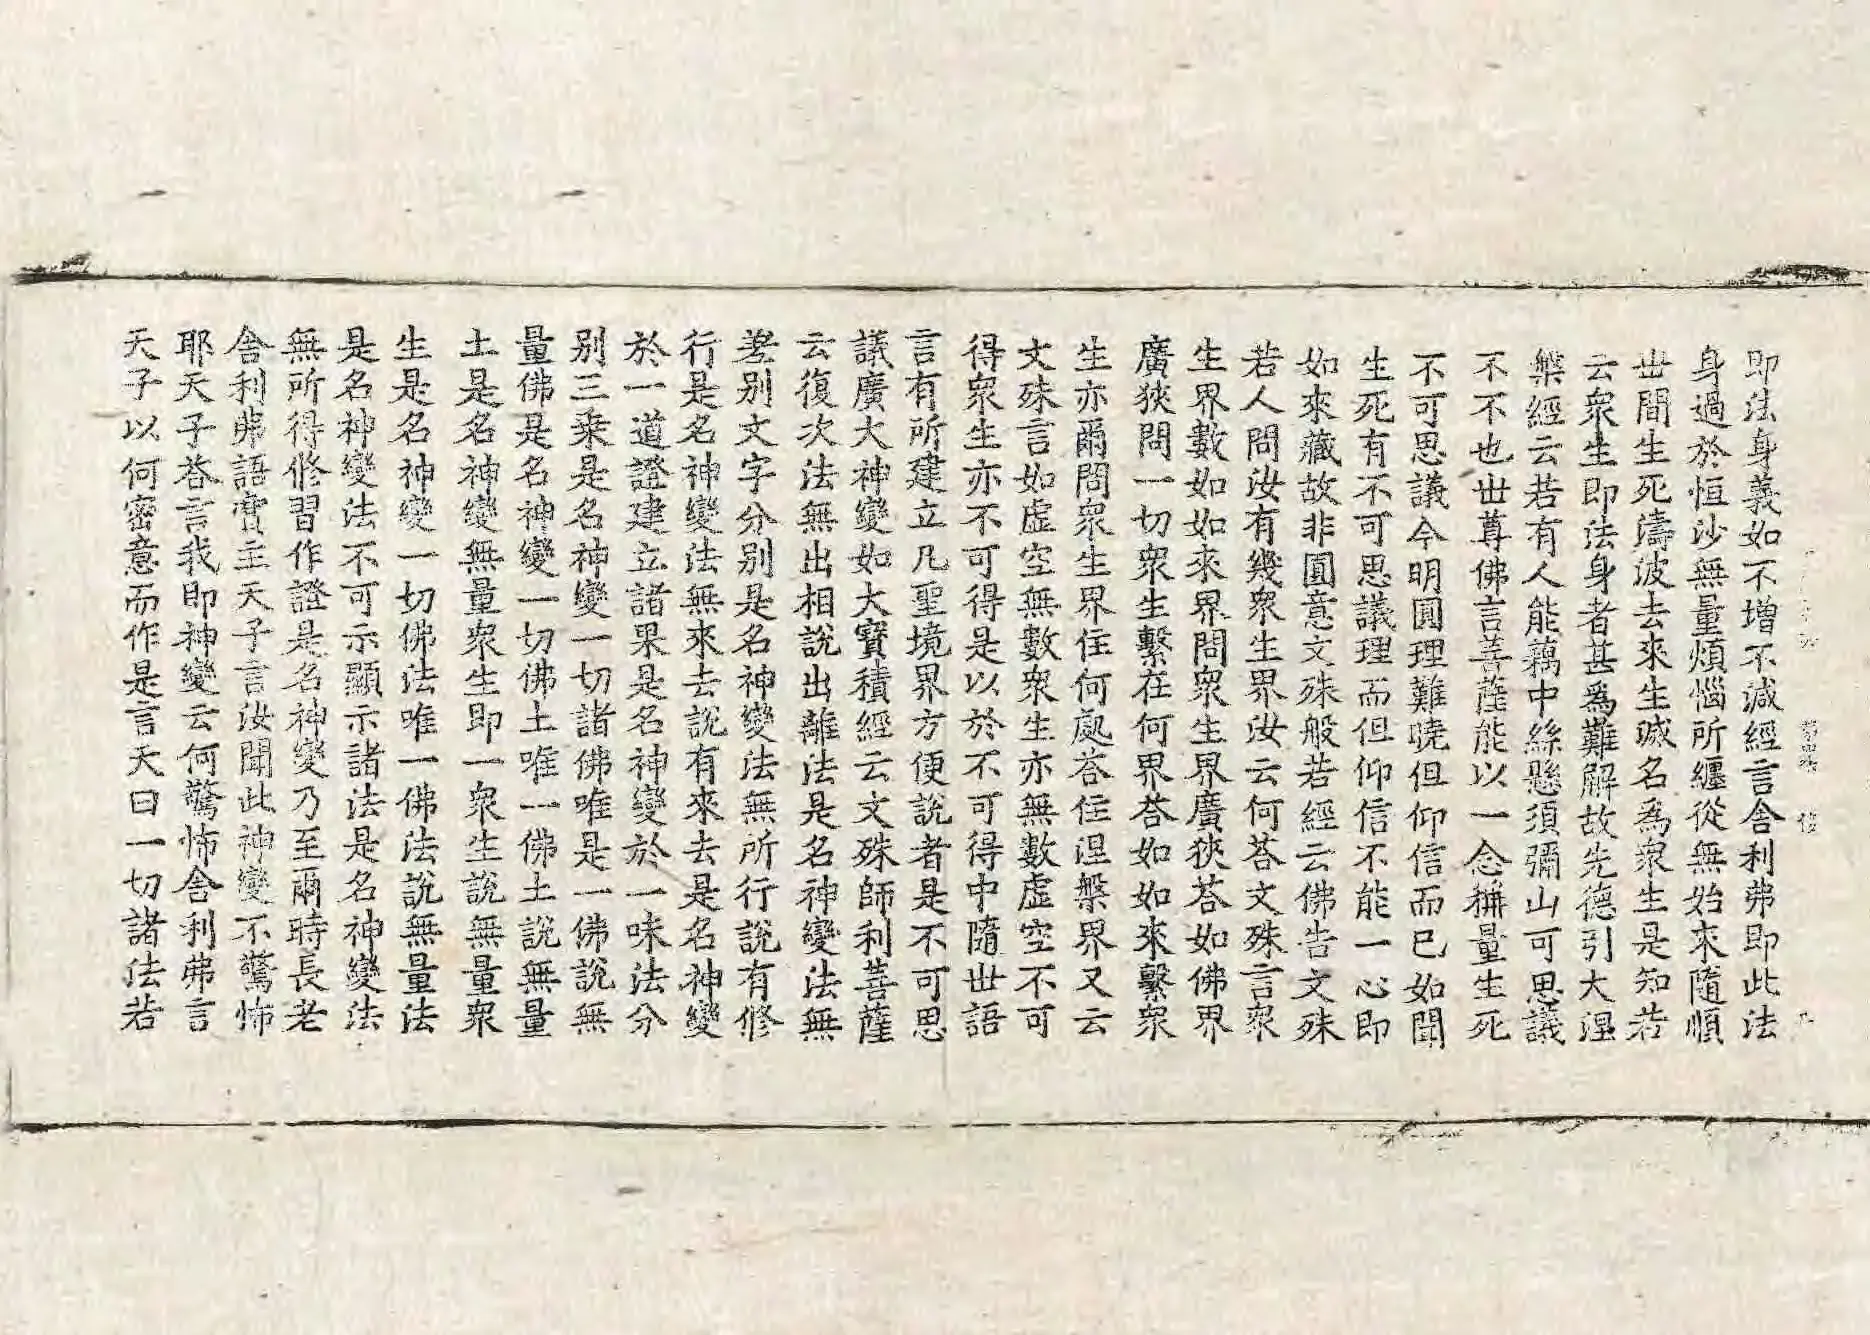 即法身義如不增不減經言舍利弗即此法
身過於恒沙無量煩惱所纏從無始來隨順
世間生死濤波去來生滅名為衆生是知若
云衆生即法身者甚為難解故先德引大涅
槃經云若有人能藕中絲懸須彌山可思議
不不也世尊佛言菩薩能以一念稱量生死
不可思議今明圓理難曉但仰信而已如聞
生死有不可思議理而但仰信不能一心即
如來藏故非圓意文殊般若經云佛告文殊
若人問汝有幾衆生界汝云何荅文殊言衆
生界數如如來界問衆生界廣狹荅如佛界
廣狹問一切衆生繫在何界荅如如來繫衆
生亦爾問衆生界住何處荅住涅槃界又云
文殊言如虛空無數衆生亦無數虛空不可
得衆生亦不可得是以於不可得中隨世語
言有所建立凡聖境界方便說者是不可思
議廣大神變如大寶積經云文殊師利菩薩
云復次法無出相說出離法是名神變法無
差別文字分別是名神變法無所行說有修
行是名神變法無來去說有來去是名神變
於一道證建立諸果是名神變於一味法分
別三乘是名神變一切諸佛唯是一佛說無
量佛是名神變一切佛土唯一佛土說無量
土是名神變無量衆生即一衆生說無量衆
生是名神變一切佛法唯一佛法說無量法
是名神變法不可示顯示諸法是名神變法
無所得修習作證是名神變乃至爾時長老
舍利弗語實主天子言汝聞此神變不驚怖
耶天子荅言我即神變云何驚怖舍利弗言
天子以何密意而作是言天曰一切諸法若